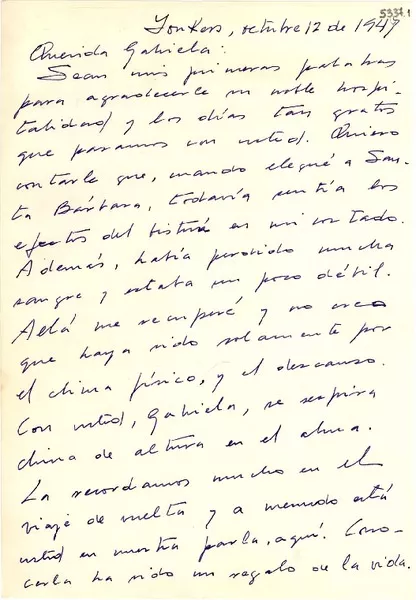 5337 1
Yonkers, octubre 12 de 1947
Querida Gabriela:
Sean mis primeras palabras
para agradecerle su noble hospi-
talidad y los días tan gratos
que pasamos con usted. Quiero
contarle que, cuando llegué a San-
ta Bárbara, todavía sentía los
efectos del bisturí en mi costado.
Además, había perdido mucha
sangre y estaba un poco débil.
Allá me recuperé y no creo
que haya sido solamente por
el clima físico, y el descanso.
Con usted, Gabriela, se respira
clima de altura en el alma.
La recordamos mucho en el
viaje de vuelta y a menudo está
usted en nuestra parla, aquí. Cono-
cerla ha sido un regalo de la vida.